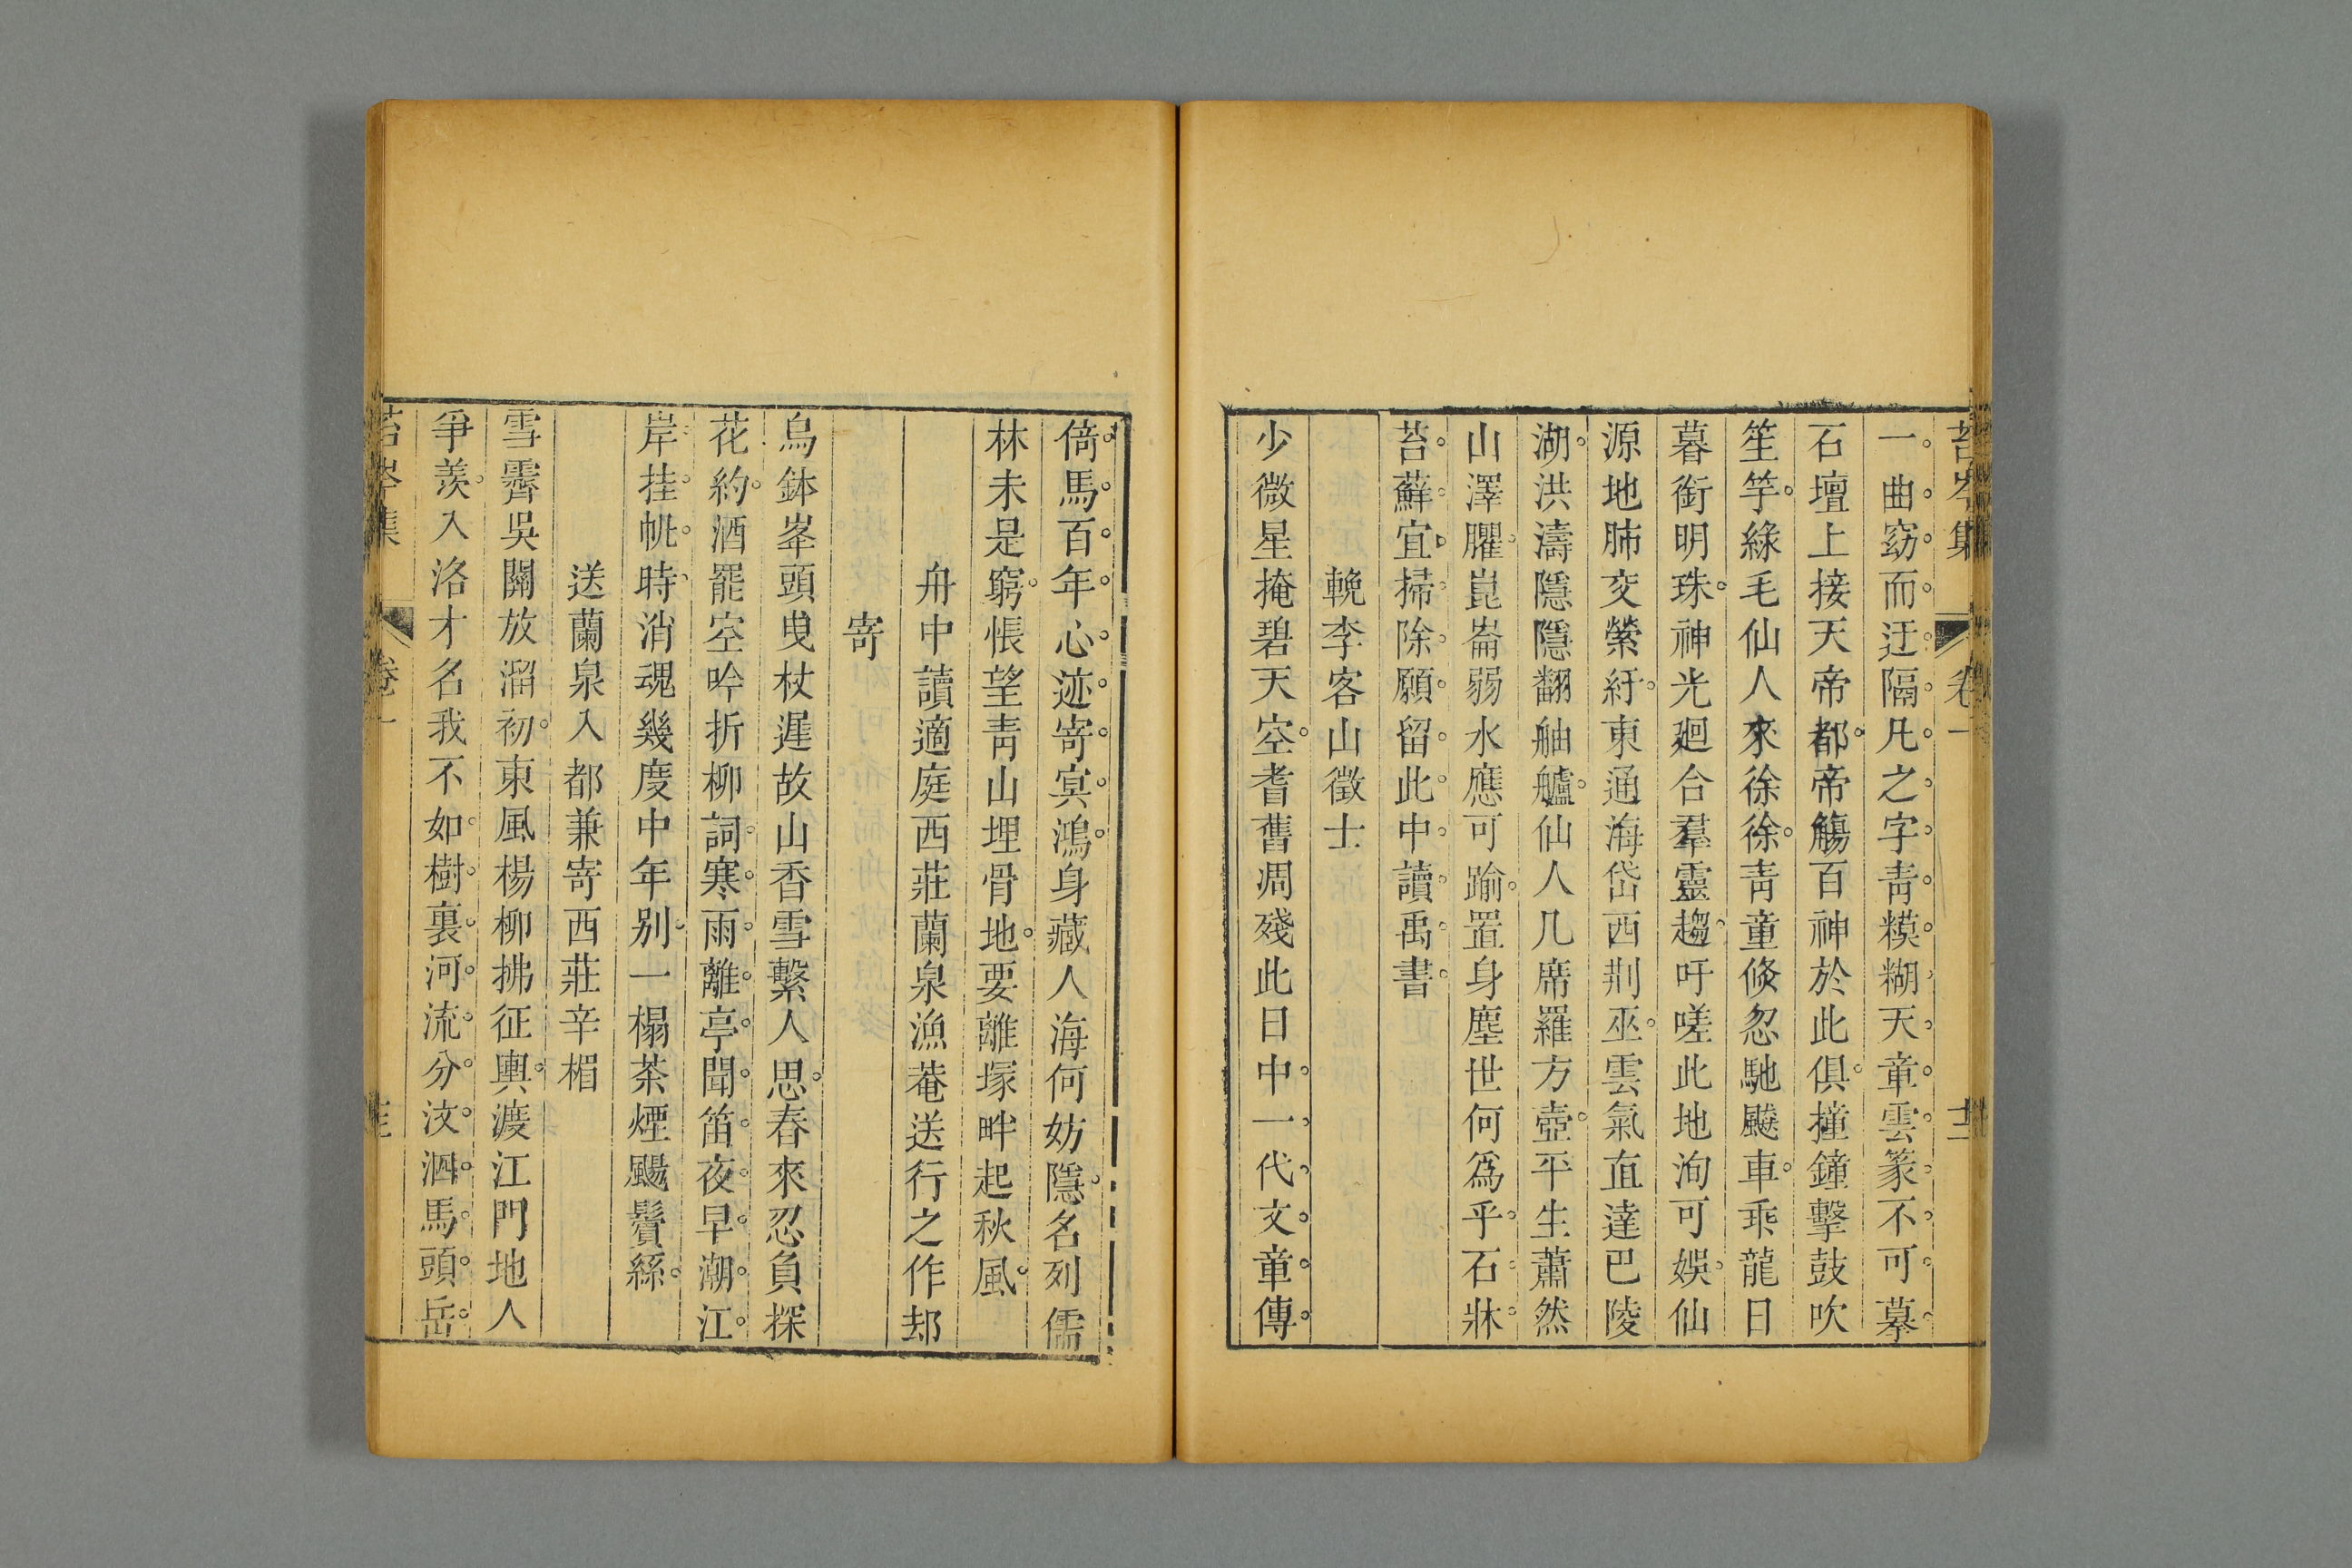 苔岑集 卷一 十二
一曲窈而迂隔凡之字靑糢糊天章雲篆不可摹
石壇上接天帝都帝觴百神於此俱撞鐘擊鼓吹
笙竽綠毛仙人來徐徐靑童倏忽馳飈車乘龍日
暮銜明珠神光迴合羣靈趨吁嗟此地洵可娛仙
源地肺交縈紆東通海岱西荆巫雲氣直達巴陵
湖洪濤隱隱翻舳艫仙人几席羅方壺平生蕭然
山澤臞崑崙弱水應可踰置身塵世何爲乎石牀
苔蘚宜掃除願留此中讀禹書
輓李客山徵士
少微星掩碧天空耆舊凋殘此日中一代文章傳
倚馬百年心迹寄冥鴻身藏人海何妨隱名列儒
林未是窮悵望靑山埋骨地要離塚畔起秋風
舟中讀適庭西莊蘭泉漁菴送行之作却
寄
烏鉢峯頭曳杖遲故山香雪繫人思春來忍負探
花約酒罷空吟折柳詞寒雨離亭聞笛夜早潮江
岸挂帆時消魂幾度中年别一榻茶煙颺鬢絲
送蘭泉入都兼寄西莊辛楣
雪霽吳關放溜初東風楊柳拂征輿渡江門地人
爭羨入洛才名我不如樹裏河流分汶泗馬頭岳
苔岑集 卷一